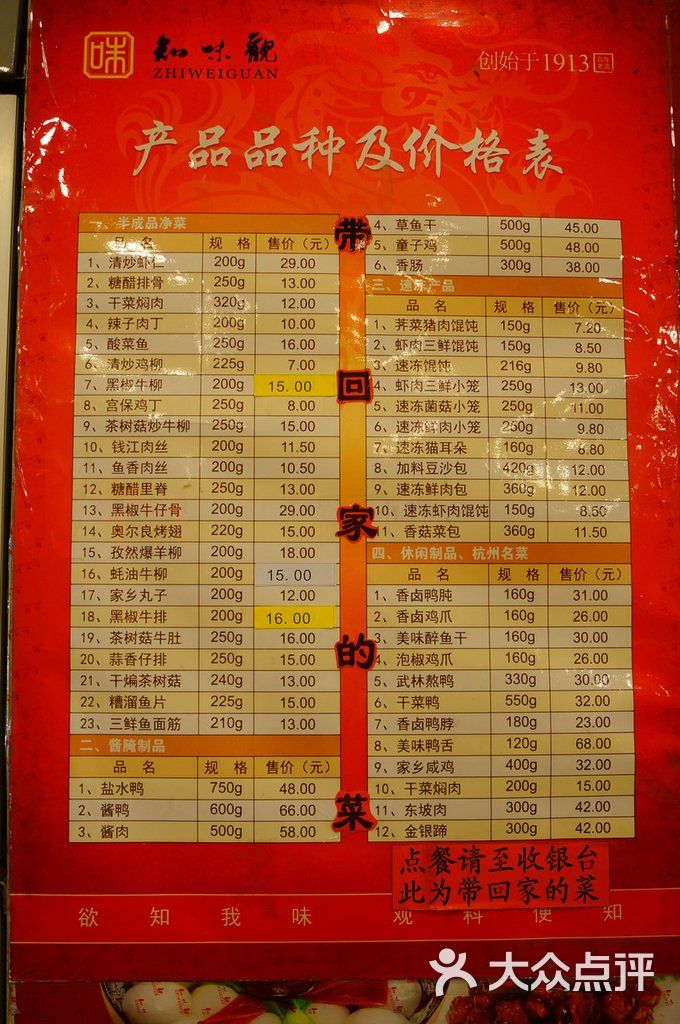 味 知味觀
ZHIWEIGUAN
创始于1913
产品品种及价格表
带回家的菜
一、半成品净菜
品 名 规 格 售价（元）
1、清炒虾仁 200g 29.00
2、糖醋排骨 250g 13.00
3、干菜焖肉 320g 12.00
4、辣子肉丁 200g 10.00
5、酸菜鱼 250g 16.00
6、清炒鸡柳 225g 7.00
7、黑椒牛柳 200g 15.00
8、宫保鸡丁 250g 8.00
9、茶树菇炒牛柳 250g 15.00
10、钱江肉丝 200g 11.50
11、鱼香肉丝 200g 10.50
12、糖醋里脊 250g 13.00
13、黑椒牛仔骨 200g 29.00
14、奥尔良烤翅 220g 15.00
15、孜然爆羊柳 200g 18.00
16、蚝油牛柳 200g 15.00
17、家乡丸子 200g 12.00
18、黑椒牛排 200g 16.00
19、茶树菇牛肚 250g 16.00
20、蒜香仔排 250g 15.00
21、干煸茶树菇 240g 13.00
22、糟溜鱼片 225g 15.00
23、三鲜鱼面筋 210g 13.00
二、酱腌制品
品 名 规 格 售价（元）
1、盐水鸭 750g 48.00
2、酱鸭 600g 66.00
3、酱肉 500g 58.00
4、草鱼干 500g 45.00
5、童子鸡 500g 48.00
6、香肠 300g 38.00
三、速冻产品
品 名 规 格 售价（元）
1、荠菜猪肉馄饨 150g 7.20
2、虾肉三鲜馄饨 150g 8.50
3、速冻馄饨 216g 9.80
4、虾肉三鲜小笼 250g 13.00
5、速冻菌菇小笼 250g 11.00
6、速冻鲜肉小笼 250g 9.80
7、速冻猫耳朵 160g 8.80
8、加料豆沙包 420g 12.00
9、速冻鲜肉包 360g 12.00
10、速冻虾肉馄饨 150g 8.50
11、香菇菜包 360g 11.50
四、休闲制品、杭州名菜
品 名 规 格 售价（元）
1、香卤鸭肫 160g 31.00
2、香卤鸡爪 160g 26.00
3、美味醉鱼干 160g 30.00
4、泡椒鸡爪 160g 26.00
5、武林熬鸭 330g 30.00
6、干菜鸭 550g 32.00
7、香卤鸭脖 180g 23.00
8、美味鸭舌 120g 68.00
9、家乡咸鸡 400g 32.00
10、干菜焖肉 200g 15.00
11、东坡肉 300g 42.00
12、金银蹄 300g 42.00
点餐请至收银台
此为带回家的菜
欲知我味 观料便知
大众点评